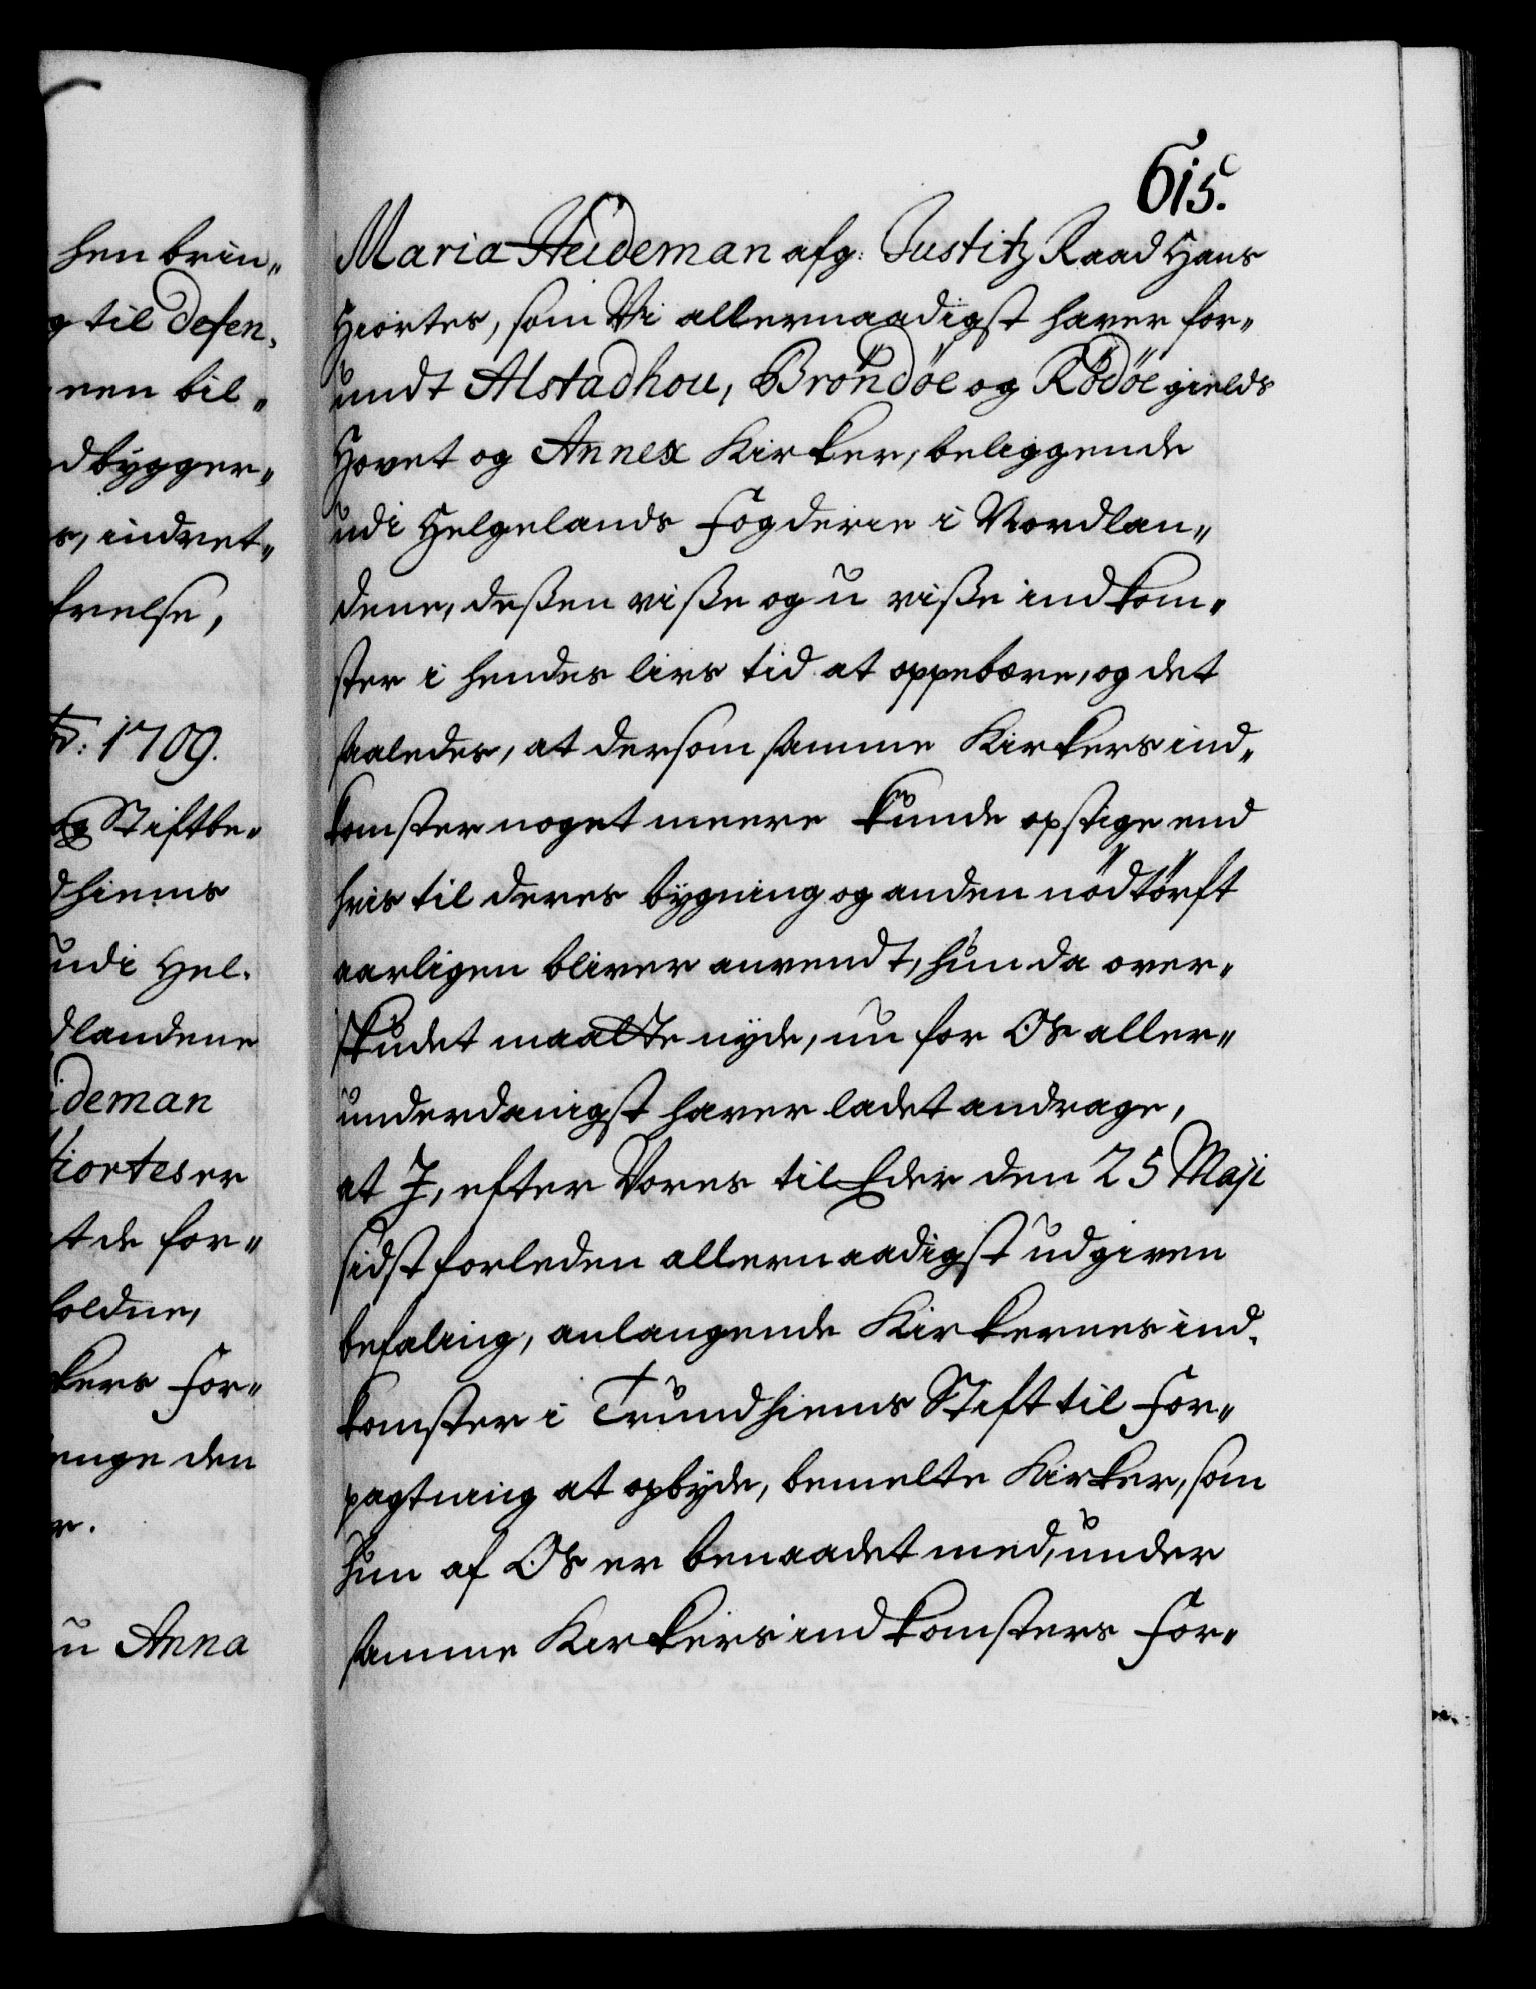 hen brin„
g til Defen„
ren bil„
dbygger„
s, indret„
krelse,
1709.
og Stiftbe„
dhiems
udi Hel„
dlandene
ideman
Hiortes er
t de for„
holdne,
kers For„
enge den
r.
u Anna
615.
Maria Heideman afg: Justitz Raad Hans
Hiortes, som Vi allernaadigst haver for„
undt Alstadhou, Bröndöe og Rödöe gields
Hovet og Annex Kirker, beliggende
udi Helgelands Fogderie i Nordlan„
dene, deßen viße og u viße indkom„
ster i hendes livs tid at oppebære, og det
saaledes, at dersom samme Kirkers ind„
komster noget meere kunde opstige end
hvis til deres bygning og anden nödtörft
aarligen bliver anvendt, hun da over„
skudet maatte nyde, nu for Os aller„
underdanigst haver ladet andrage,
at I, efter Vores til Eder den 25 Maji
sidst forleden allernaadigst udgiven
befaling, anlangende Kirkernes ind„
komster i Trundhiems Stift til For„
pagtning at opbyde, bemelte Kirker, som
hun af Os er benaadet med, under
samme Kirkers indkomsters For„